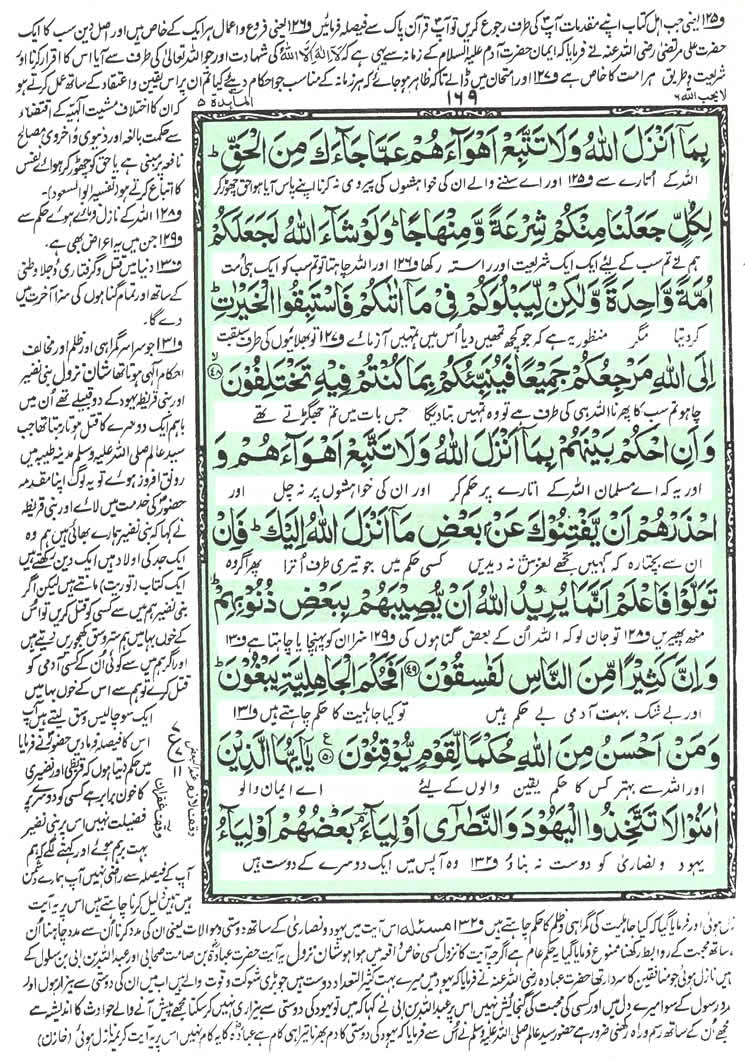 و۱۲۵ یعنی جب اہل کتاب اپنے مقدمات آپ کی طرف رجوع کریں تو آپ قرآن پاک سے فیصلہ فرمائیں و۱۲۶ یعنی فروع و اعمال ہر ایک کے خاص ہیں اور اصل دین سب کا ایک
حضرت علی مرتضیٰ رضی اللہ عنہ نے فرمایا کہ ایمان حضرت آدم علیہ السلام کے زمانہ سے یہی ہے کہ لا الہ الا اللہ کی شہادت اور جو اللہ تعالیٰ کی طرف سے آیا اس کا اقرار کرنا اور
شریعت و طریق ہر امت کا خاص ہے و۱۲۷ اور امتحان میں ڈالے تاکہ ظاہر ہو جائے کہ ہر زمانہ کے مناسب جو احکام دیئے کیا تم ان پر یقین و اعتقاد کے ساتھ عمل کرتے ہو
لا یحب اللہ ۶
۱۶۹
المائدۃ ۵
بِمَاۤ اَنْزَلَ اللّٰهُ وَلَا تَتَّبِعْ اَهْوَآءَهُمْ عَمَّا جَآءَكَ مِنَ الْحَقِّ ؕ
اللہ کے اتارے سے و۱۲۵ اور اے سننے والے ان کی خواہشوں کی پیروی نہ کرنا اپنے پاس آیا ہوا حق چھوڑ کر
لِكُلٍّ جَعَلْنَا مِنْكُمْ شِرْعَةً وَّمِنْهَاجًا ؕ وَلَوْ شَآءَ اللّٰهُ لَجَعَلَكُمْ
ہم نے تم سب کے لیے ایک ایک شریعت اور راستہ رکھا و۱۲۶ اور اللہ چاہتا تو تم سب کو ایک ہی امت
اُمَّةً وَّاحِدَةً وَّلٰكِنْ لِّيَبْلُوَكُمْ فِيْ مَاۤ اٰتٰىكُمْ فَاسْتَبِقُوا الْخَيْرٰتِ ؕ
کر دیتا مگر منظور یہ ہے کہ جو کچھ تمہیں دیا اس میں تمہیں آزمائے و۱۲۷ تو بھلائیوں کی طرف سبقت
اِلَى اللّٰهِ مَرْجِعُكُمْ جَمِيْعًا فَيُنَبِّئُكُمْ بِمَا كُنْتُمْ فِيْهِ تَخْتَلِفُوْنَ ۙ﴿۴۸﴾
چاہو تم سب کا پھرنا اللہ ہی کی طرف ہے تو وہ تمہیں بتا دیگا جس بات میں تم جھگڑتے تھے
وَاَنِ احْكُمْ بَيْنَهُمْ بِمَاۤ اَنْزَلَ اللّٰهُ وَلَا تَتَّبِعْ اَهْوَآءَهُمْ وَ
اور یہ کہ اے مسلمان اللہ کے اتارے پر حکم کر اور ان کی خواہشوں پر نہ چل اور
احْذَرْهُمْ اَنْ يَّفْتِنُوْكَ عَنْۢ بَعْضِ مَاۤ اَنْزَلَ اللّٰهُ اِلَيْكَ ؕ فَاِنْ
ان سے بچتا رہ کہ کہیں تجھے لغزش نہ دیدیں کسی حکم میں جو تیری طرف اترا پھر اگر وہ
تَوَلَّوْا فَاعْلَمْ اَنَّمَا يُرِيْدُ اللّٰهُ اَنْ يُّصِيْبَهُمْ بِبَعْضِ ذُنُوْبِهِمْ ؕ
منھ پھیریں و۱۲۸ تو جان لو کہ اللہ ان کے بعض گناہوں کی و۱۲۹ سزا ان کو پہنچایا چاہتا ہے و۱۳۰
وَاِنَّ كَثِيْرًا مِّنَ النَّاسِ لَفٰسِقُوْنَ ﴿۴۹﴾ اَفَحُكْمَ الْجَاهِلِيَّةِ يَبْغُوْنَ ؕ
اور بے شک بہت آدمی بے حکم ہیں تو کیا جاہلیت کا حکم چاہتے ہیں و۱۳۱
وَمَنْ اَحْسَنُ مِنَ اللّٰهِ حُكْمًا لِّقَوْمٍ يُّوْقِنُوْنَ ﴿۵۰﴾ ع يٰۤاَيُّهَا الَّذِيْنَ
اور اللہ سے بہتر کس کا حکم یقین والوں کے لیے اے ایمان والو
اٰمَنُوْا لَا تَتَّخِذُوا الْيَهُوْدَ وَالنَّصٰرٰۤى اَوْلِيَآءَ ؔۘ بَعْضُهُمْ اَوْلِيَآءُ
یہود و نصاریٰ کو دوست نہ بناؤ و۱۳۲ وہ آپس میں ایک دوسرے کے دوست ہیں
کہ ان کا اختلاف مشیت الٰہیہ کے اقتضاء
سے حکمت بالغہ اور دنیوی و اخروی مصالح
نافعہ پر مبنی ہے یا حق کو چھوڑ کر ہوائے نفس
کا اتباع کرتے ہو (تفسیر ابوالسعود)
و۱۲۸ اللہ کے نازل فرمائے ہوئے حکم سے
و۱۲۹ جن میں یہ اعراض بھی ہے۔
و۱۳۰ دنیا میں قتل و گرفتاری و جلا وطنی
کے ساتھ اور تمام گناہوں کی سزا آخرت میں
دے گا۔
و۱۳۱ جو سراسر گمراہی اور ظلم اور مخالف
احکام الٰہی ہوتا تھا شان نزول بنی نضیر
اور بنی قریظہ یہود کے دو قبیلے تھے ان میں
باہم ایک دوسرے کا قتل ہوتا رہتا تھا جب
سید عالم صلی اللہ علیہ وسلم مدینہ طیبہ میں
رونق افروز ہوئے تو یہ لوگ اپنا مقدمہ
حضور کی خدمت میں لائے اور بنی قریظہ
نے کہا کہ بنی نضیر ہمارے بھائی ہیں ہم وہ
ایک جد کی اولاد ہیں ایک دین رکھتے ہیں
ایک کتاب (توریت) مانتے ہیں لیکن اگر
بنی نضیر ہم میں سے کسی کو قتل کریں تو اس
کے خوں بہا میں ہم ستر وسق کھجوریں دیتے ہیں
اور اگر ہم میں سے کوئی ان کے کسی آدمی کو
قتل کرے تو ہم سے اس کے خوں بہا میں
ایک سو چالیس وسق لیتے ہیں آپ
اس کا فیصلہ فرما دیں حضور نے فرمایا
میں حکم دیتا ہوں کہ قرظی اور نضیری
کا خون برابر ہے کسی کو دوسرے پر
فضیلت نہیں اس پر بنی نضیر
بہت برہم ہوئے اور کہنے لگے کہ ہم
آپ کے فیصلہ سے راضی نہیں آپ ہمارے دشمن
ہیں ہمیں ذلیل کرنا چاہتے ہیں اس پر یہ آیت
نازل ہوئی اور فرمایا گیا کہ کیا جاہلیت کی گمراہی و ظلم کا حکم چاہتے ہیں و۱۳۲ مسئلہ اس آیت میں یہود و نصاریٰ کے ساتھ دوستی و موالات یعنی ان کی مدد کرنا ان سے مدد چاہنا ان
کے ساتھ محبت کے روابط رکھنا ممنوع فرمایا گیا یہ حکم عام ہے اگرچہ آیت کا نزول کسی خاص واقعہ میں ہوا ہو شان نزول یہ آیت حضرت عبادہ بن صامت صحابی اور عبداللہ بن ابی بن سلول کے